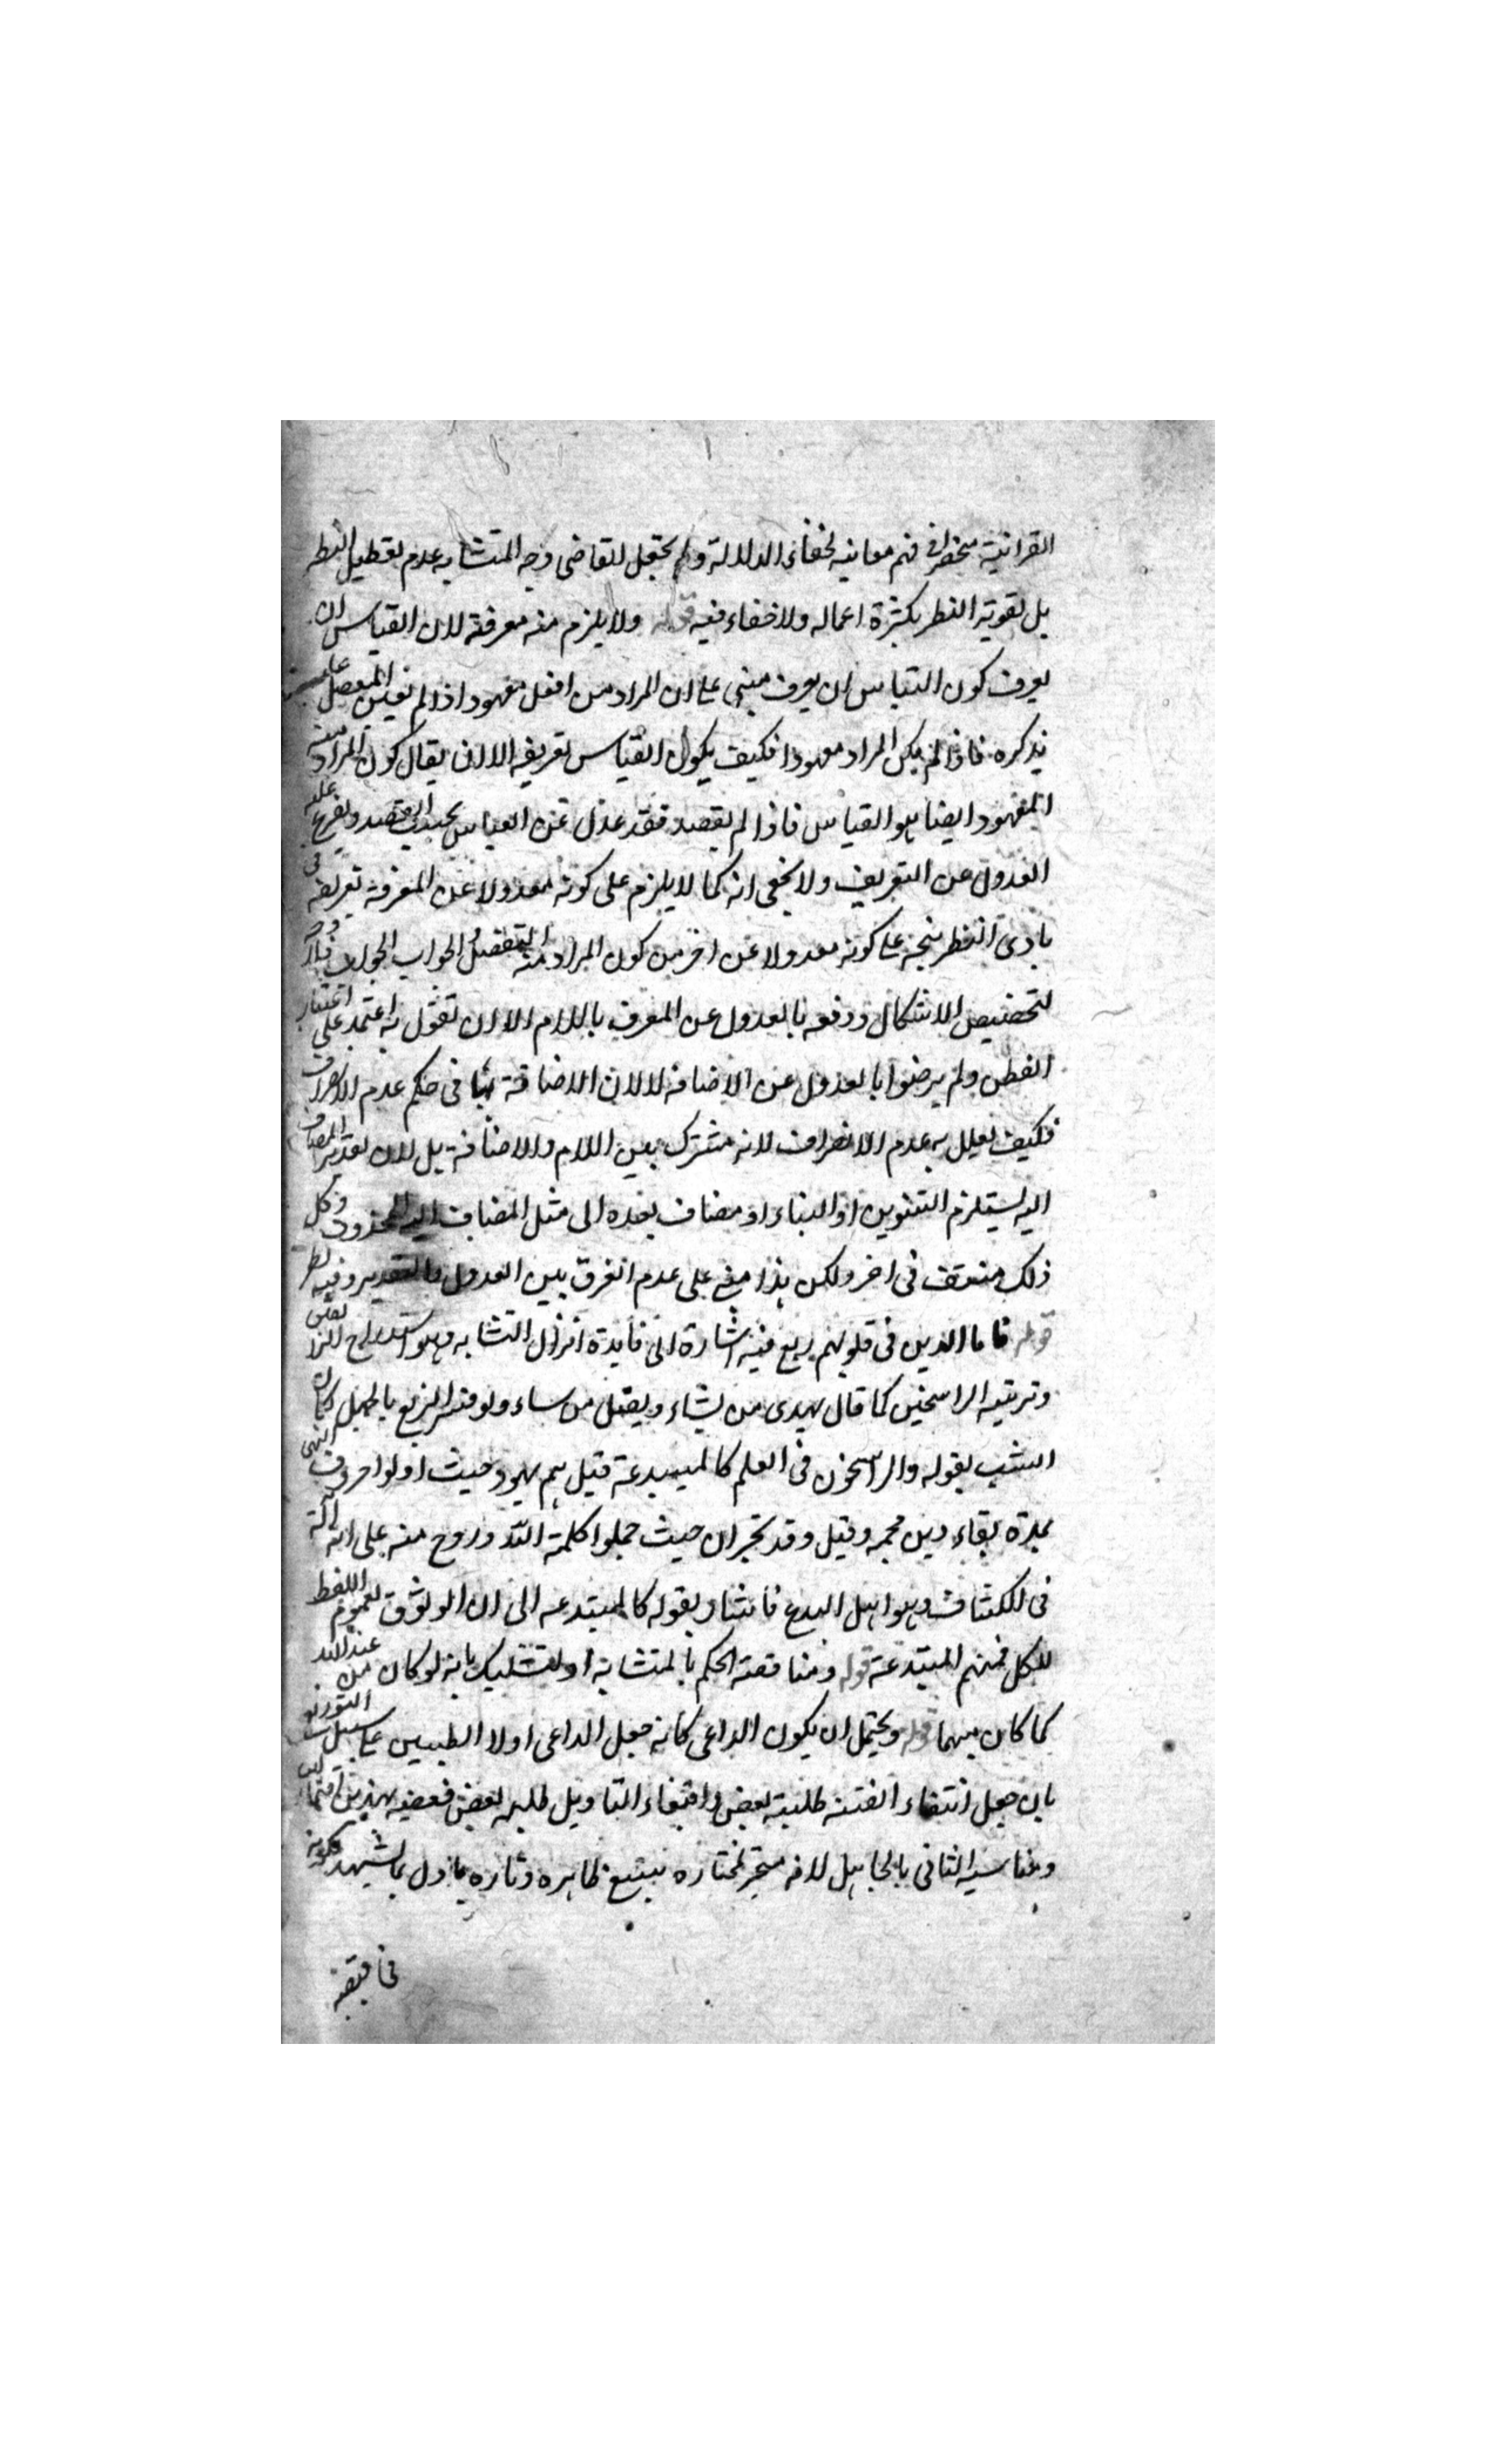 القرانية منحصرا فى فهم معانيه لخفاء الدلالة ولم يجعل القاضى وجه المتشابه عدم تعطيل النظر
بل تقوية النظر بكثرة اعماله ولا خفاء فيه قوله ولا يلزم منه معرفة لان القياس ان
يعرف كون القياس ان يعرف مبنى على ان المراد من افعل معهود اذا لم تعين المفصل عليه
يذكره فاذا لم يكن المراد معهودا فكيف يكون القياس تعريفه الا ان يقال كون المراد منه
المعهود ايضا هو القياس فاذا لم يقصد فقد عدل عن القياس بحسب القصد وتفرع عليه
العدول عن التعريف ولا يخفى انه كما لا يلزم على كونه معدولا عن المعرفة تعريفه فى
بادى النظر يتجه على كونه معدولا عن اخر من كون المراد منه التفضيل الجواب الجواب
لتخصيص الاشكال ودفعه بالعدول عن المعرف باللام الا ان تقول به اعتمد على اعتبار
الفطن ولم يرضوا بالعدول عن الاضافة لا لان الاضافة ينافى حكم عدم الانصراف
فكيف يعلل به عدم الانصراف لانه مشترك بين اللام والاضافة بل لان تقدير المضاف
اليه يستلزم التنوين او البناء او مضاف بعده الى مثل المضاف اليه المحذوف وكل
ذلك منتف فى اخر ولكن هذا مبنى على عدم الفرق بين العدول والتقدير وفيه نظر
قوله فاما الذين فى قلوبهم زيغ فيه اشارة الى فايدة انزال المتشابه وهو استدراج
وتربية الراسخين كما قال يهدى من يشاء ويضل من يشاء ولو فسر الزيغ بالجهل لكان
انسب بقوله والراسخون فى العلم كالمبتدعة قيل هم يهود حيث اولوا حروف
بمدة بقاء دين محمد وقيل وفد نجران حيث حملوا كلمة الله وروح منه على انه اله
فى الكشاف وهو اهل البدع فاشار بقوله كالمبتدعه الى ان الوثوق بعموم اللفظ
للكل فمنهم المبتدعة قوله ومناقصة الحكم بالمتشابه او التشكيك بانه لو كان من عند الله
كما كان بينهما قوله ويحتمل ان يكون الداعى كانه جعل الداعى اولا الطلبين على سبيل التوزيع
بان جعل ابتغاء الفتنة طلبة بعض وابتغاء التاويل طلبه بعض
ويناسبه الثانى بالجاهل لانه متحير تارة يتبع ظاهره وتارة ياول بما يشتهيه